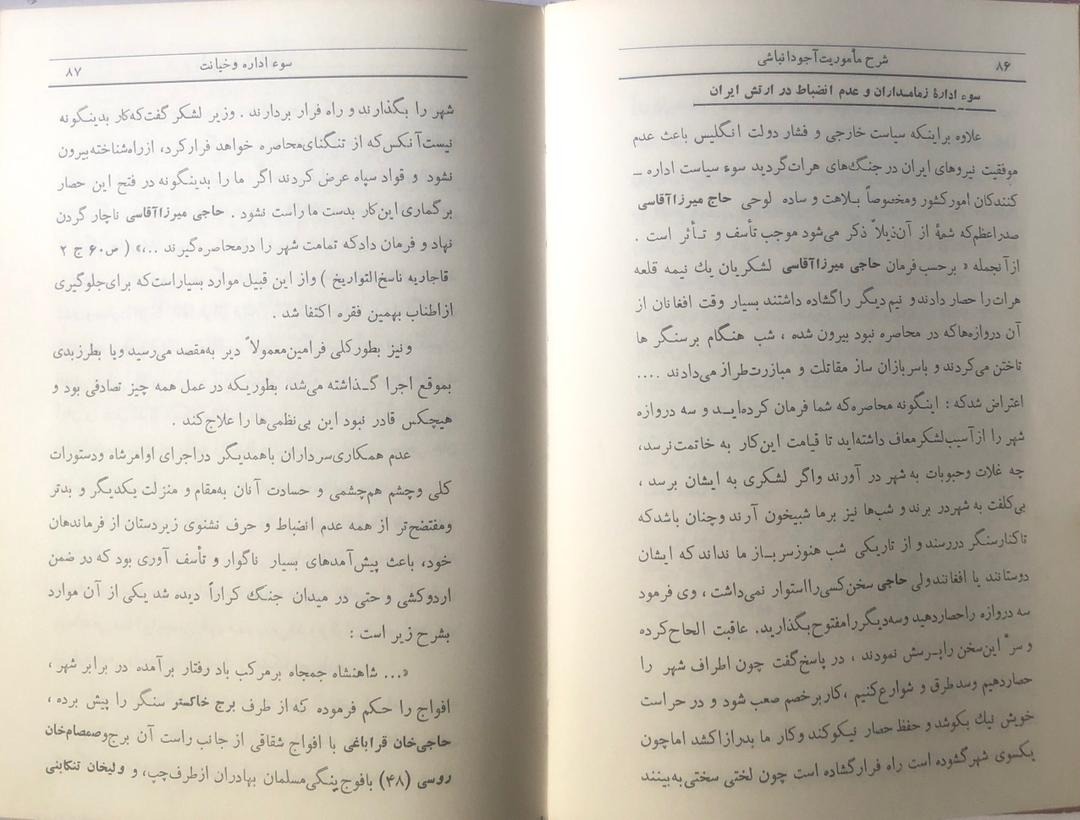 شرح مأموریت آجودانباشی ۸۶
سوء ادارهٔ زمامداران و عدم انضباط در ارتش ایران
علاوه براینکه سیاست خارجی و فشار دولت انگلیس باعث عدم
موفقیت نیروهای ایران در جنگ‌های هرات گردید سوء سیاست اداره ـ
کنندکان امور کشور ومخصوصاً بـلاهت و ساده لوحی حاج میرزا آقاسی
صدراعظم که شمهٔ از آن ذیلاً ذکر می‌شود موجب تأسف و تـأثر است .
از آنجمله « برحسب فرمان حاجی میرزا آقاسی لشکریان یك نیمه قلعه
هرات را حصار دادند و نیم دیگر را گشاده داشتند بسیار وقت افغانان از
آن دروازه‌ها که در محاصره نبود بیرون شده ، شب هنگام برسنگر ها
تاختن می‌کردند و باسربازان ساز مقاتلت و مبازرت طراز می‌دادند ....
اعتراض شدکه : اینگونه محاصره که شما فرمان کرده‌ایـد و سه دروازه
شهر را از آسیب لشکر معاف داشته‌اید تا قیامت این کار به خاتمت نرسد،
چه غلات وحبوبات به شهر در آورند واگر لشکری به ایشان برسد ،
بی‌کلفت به شهر در برند و شب‌ها نیز برما شبیخون آرند وچنان باشدکه
تاکنار سنگر در رسند و از تاریکی شب هنوز سربـاز ما نداند که ایشان
دوستانند یا افغانند ولی حاجی سخن کسی را استوار نمی‌داشت ، وی فرمود
سه دروازه را حصار دهید وسه دیگر را مفتوح بگذارید. عاقبت الحاح کرده
و سرّ این سخن را پرسش نمودند ، در پاسخ گفت چون اطراف شهر را
حصار دهیم وسد طرق و شوارع کنیم ، کار بر خصم صعب شود و در حراست
خویش نیك بکوشد و حفظ حصار نیکو کند وکار ما بدرازا کشد اما چون
یکسوی شهر گشوده است راه فرار گشاده است چون لختی سختی به‌بینند
سوء اداره وخیانت ۸۷
شهر را بگذارند و راه فرار بردارند . وزیر لشکر گفت که کار بدینگونه
نیست آنکس که از تنگنای محاصره خواهد فرار کرد، از راه شناخته بیرون
نشود و قواد سپاه عرض کردند اگر ما را بدینگونه در فتح این حصار
برگماری این کار بدست ما راست نشود . حاجی میرزا آقاسی ناچار گردن
نهاد و فرمان داد که تمامت شهر را در محاصره گیرند ...» ( ص ۶۰ ج ۲
قاجاریه ناسخ التواریخ ) واز این قبیل موارد بسیار است که برای جلوگیری
از اطناب بهمین فقره اکتفا شد .
ونیز بطورکلی فرامین معمولاً دیر به‌مقصد می‌رسید ویا بطرز بدی
بموقع اجرا گـذاشته می‌شد، بطوریکه در عمل همه چیز تصادفی بود و
هیچکس قادر نبود این بی‌نظمی‌ها را علاج کند .
عدم همکاری سرداران باهمدیگر در اجرای اوامر شاه ودستورات
کلی وچشم هم‌چشمی و حسادت آنان به‌مقام و منزلت یکدیگر و بدتر
ومفتضح‌تر از همه عدم انضباط و حرف نشنوی زیردستان از فرماندهان
خود، باعث پیش‌آمدهای بسیار ناگوار و تأسف آوری بود که در ضمن
اردوکشی و حتی در میدان جنگ کراراً دیده شد یکی از آن موارد
بشرح زیر است :
«... شاهنشاه جمجاه برمرکب باد رفتار برآمده در برابر شهر ،
افواج را حکم فرموده که از طرف برج خاکستر سنگر را پیش برده ،
حاجی خان قراباغی با افواج شقاقی از جانب راست آن برج وصمصام خان
روسی (۴۸) بافوج ینگی مسلمان بهادران از طرف چپ، و ولیخان تنکابنی